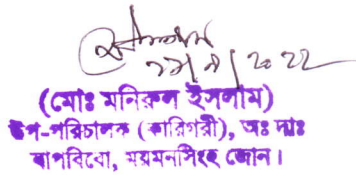 ২২
(মোঃ মনিরুল ইসলাম)
উপ-পরিচালক (কারিগরী), অঃ দাঃ
বাপবিবো, ময়মনসিংহ জোন।